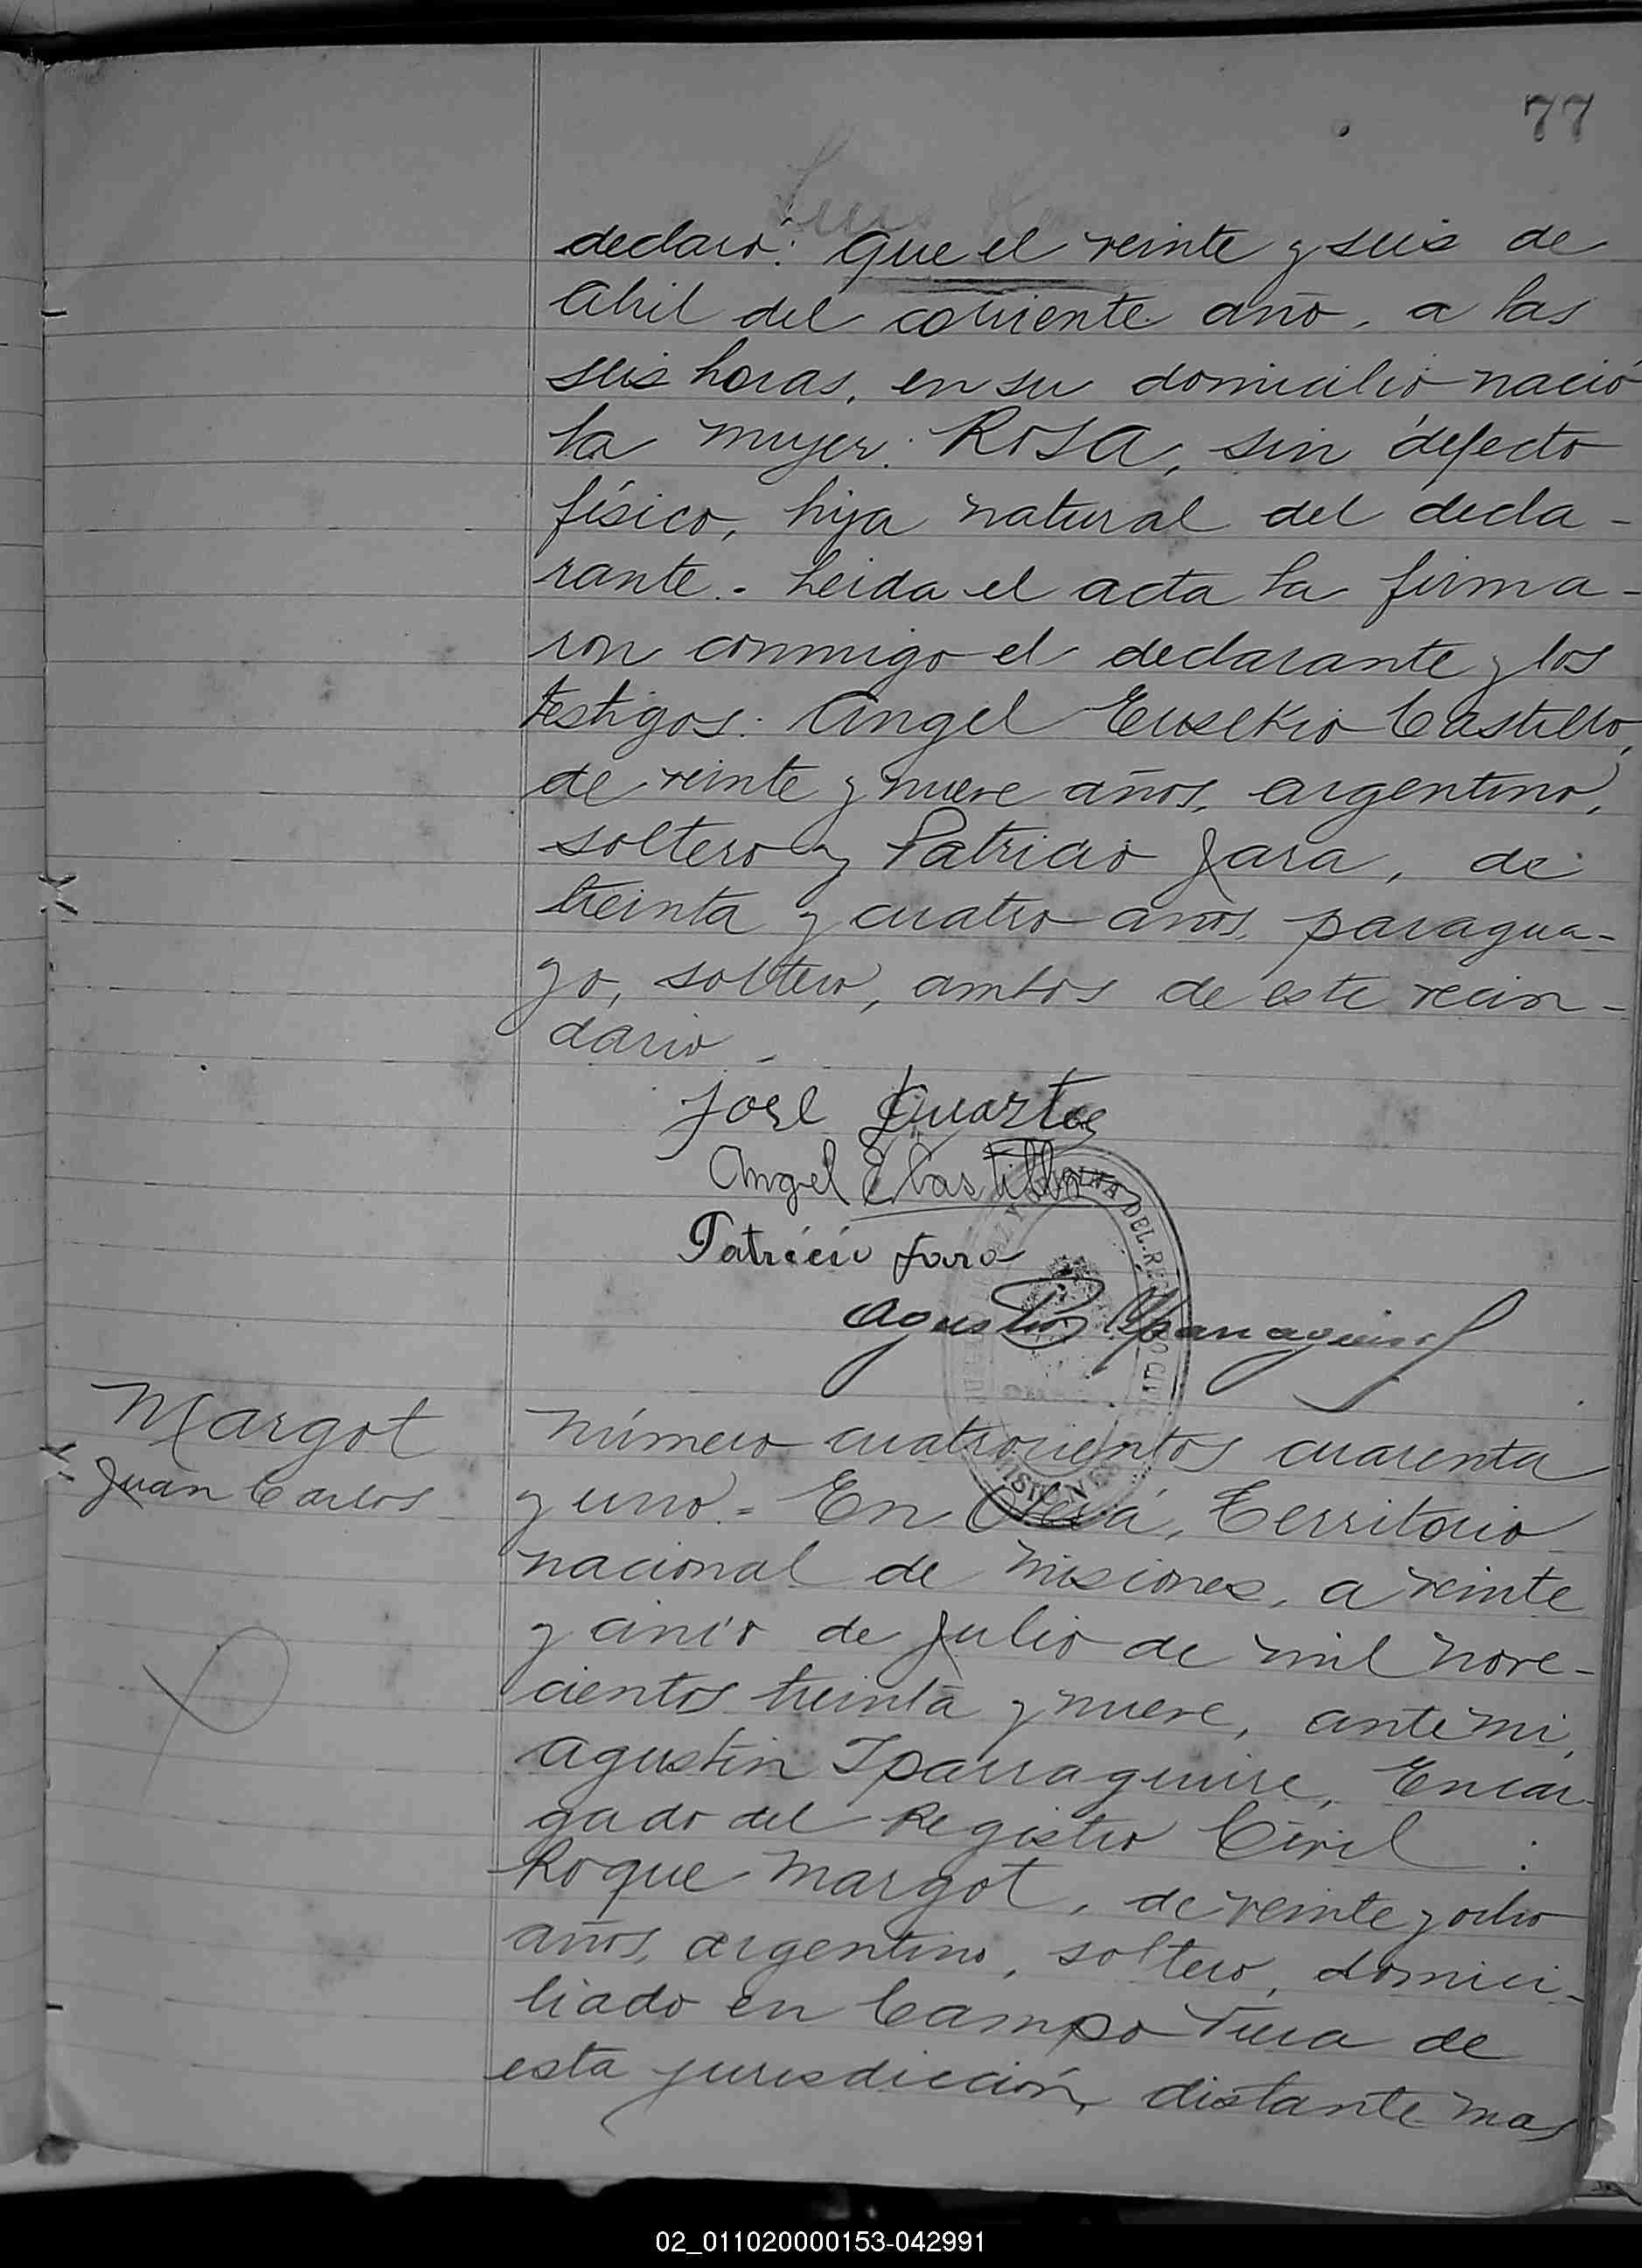 77
declaró: Que el veinte y seis de
Abril del corriente año, a las
seis horas, en su domicilio nació
la mujer: ROSA, sin defecto
físico, hija natural del decla-
rante.- Leida el acta la firma-
ron conmigo el declarante y los
testigos: Angel Eusebio Castillo,
de veinte y nueve años, argentino,
soltero y Patricio Jara, de
treinta y cuatro años, paragua-
yo, soltero, ambos de este vecin-
dario.-
José Duarte
Angel E Castillo
Patricio Jara
Agustín Iparraguirre
Margot
Juan Carlos
Número cuatrocientos cuarenta
y uno.= En Oberá, Territorio
nacional de Misiones, a veinte
y cinco de Julio de mil nove-
cientos treinta y nueve, ante mi,
Agustín Iparraguirre, Encar-
gado del Registro Civil :
Roque Margot, de veinte y ocho
años, argentino, soltero, domici-
liado en Campo Viera de
esta jurisdicción, distante mas
02_011020000153-042991